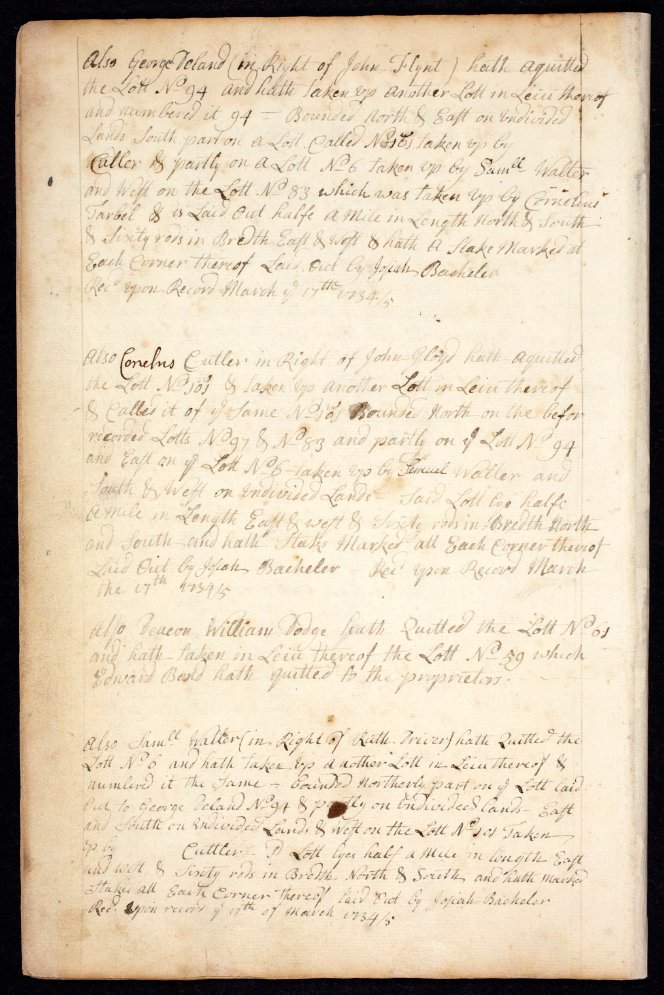 Also George Deland (in Right of John Flynt) hath aquitted
the Lott No 94 and hath taken up another Lott in Leiu thereof
and numbered it 94 = Bounded North & East on Undivided
Lands South part on a Lott Called No 101 taken up by
Cutler & partly on a Lott No 6 taken up by Samll Walter
and West on the Lott No 83 which was taken up by Cornelius
Tarbel & is Laid Out halfe a Mile in Length North & South
& Sixty rods in Bredth East & West & hath a Stake Marked at
Each Corner thereof Laid Out by Josiah Bacheler
Recd upon Record March ye 17th 1734/5
Also Conelus Cutler in Right of John Gloyd hath aquitted
the Lott No 101 & taken up another Lott in Leiu thereof
& Called it of ye Same No 101 Bounded North on the befor
recorded Lotts No 97 & No 83 and partly on ye Lott No 94
and East on ye Lott No 6 taken up by Samuel Walter and
South & West on Undivided Lands = Said Lott halfe
a Mile in Length East & West & Sixty rods in Bredth North
and South and hath Staks Marked att Each Corner thereof
Laid Out by Josiah Bacheler = Recd upon Record March
the 17th 1734/5
Also Deacon William Dodge hath Quitted the Lott No 61
and hath taken in Leiu thereof the Lott No 59 which
Edward Bond hath quitted to the proprietors.
Also Samll Walter (in Right of Ruth Driver) hath Quitted the
Lott No 6 and hath taken up another Lott in Leiu thereof &
numbred it the Same = Bounded Northerly part on ye Lott laid
Out to George Deland No 94 & partly on Undivided lands East
and South on Undivided Lands & West on the Lott No 101 Taken
up by Cuttler = Sd Lott lyes half a Mile in length East
and west & Sixty rods in Bredth North & South and hath Marked
Stakes att Each Corner thereof laid Out by Josiah Bacheler
Recd Upon record ye 17th of March 1734/5